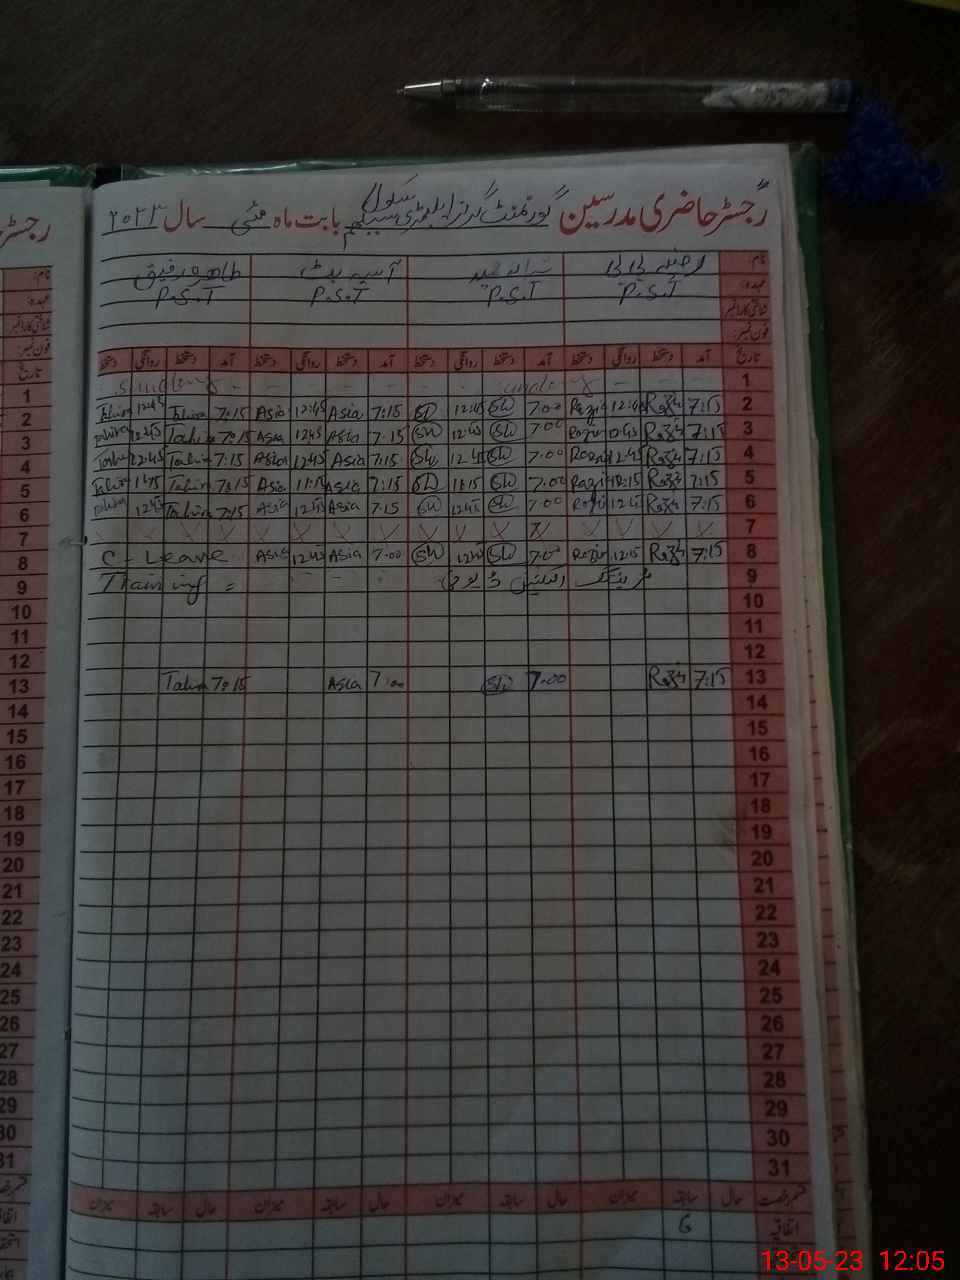 رجسٹر حاضری مدرسین گورنمنٹ گرلز ایلیمنٹری سکول بابت ماہ مئی سال ۲۰۲۳
نام: رضیہ بی بی آسیہ بٹ طاہرہ رفیق
عہدہ: P.S.T P.S.T P.S.T P.S.T
شناختی کارڈ نمبر
فون نمبر:
تاریخ آمد دستخط روانگی دستخط آمد دستخط روانگی دستخط آمد دستخط روانگی دستخط آمد دستخط روانگی دستخط
1 Sunday
2 7:15 Razia 12:45 Razia 7:00 SW 12:45 SW 7:15 Asia 12:45 Asia 7:15 Tahira 12:45 Tahira
3 7:15 Razia 12:45 Razia 7:00 SW 12:45 SW 7:15 Asia 12:45 Asia 7:15 Tahira 12:45 Tahira
4 7:15 Razia 12:45 Razia 7:00 SW 12:45 SW 7:15 Asia 12:45 Asia 7:15 Tahira 12:45 Tahira
5 7:15 Razia Razia 7:00 SW 11:15 SW 7:15 Asia 11:15 Asia 7:15 Tahira Tahira
6 7:15 Razia 12:45 Razia 7:00 SW 12:45 SW 7:15 Asia 12:45 Asia 7:15 Tahira 12:45 Tahira
7 X X X X X X X X X X X X X X X X
8 7:15 Razia 12:15 Razia 7:00 SW 12:45 SW 7:00 Asia 12:45 Asia C-Leave
9 ٹریننگ الیکشن ڈیوٹی Training =
10
11
12
13 7:15 Razia 7:00 SW 7:00 Asia 7:15 Tahira
14
15
16
17
18
19
20
21
22
23
24
25
26
27
28
29
30
31
قسم رخصت حال سابقہ میزان حال سابقہ میزان حال سابقہ میزان حال سابقہ میزان
اتفاقیہ 6
13-05-23 12:05